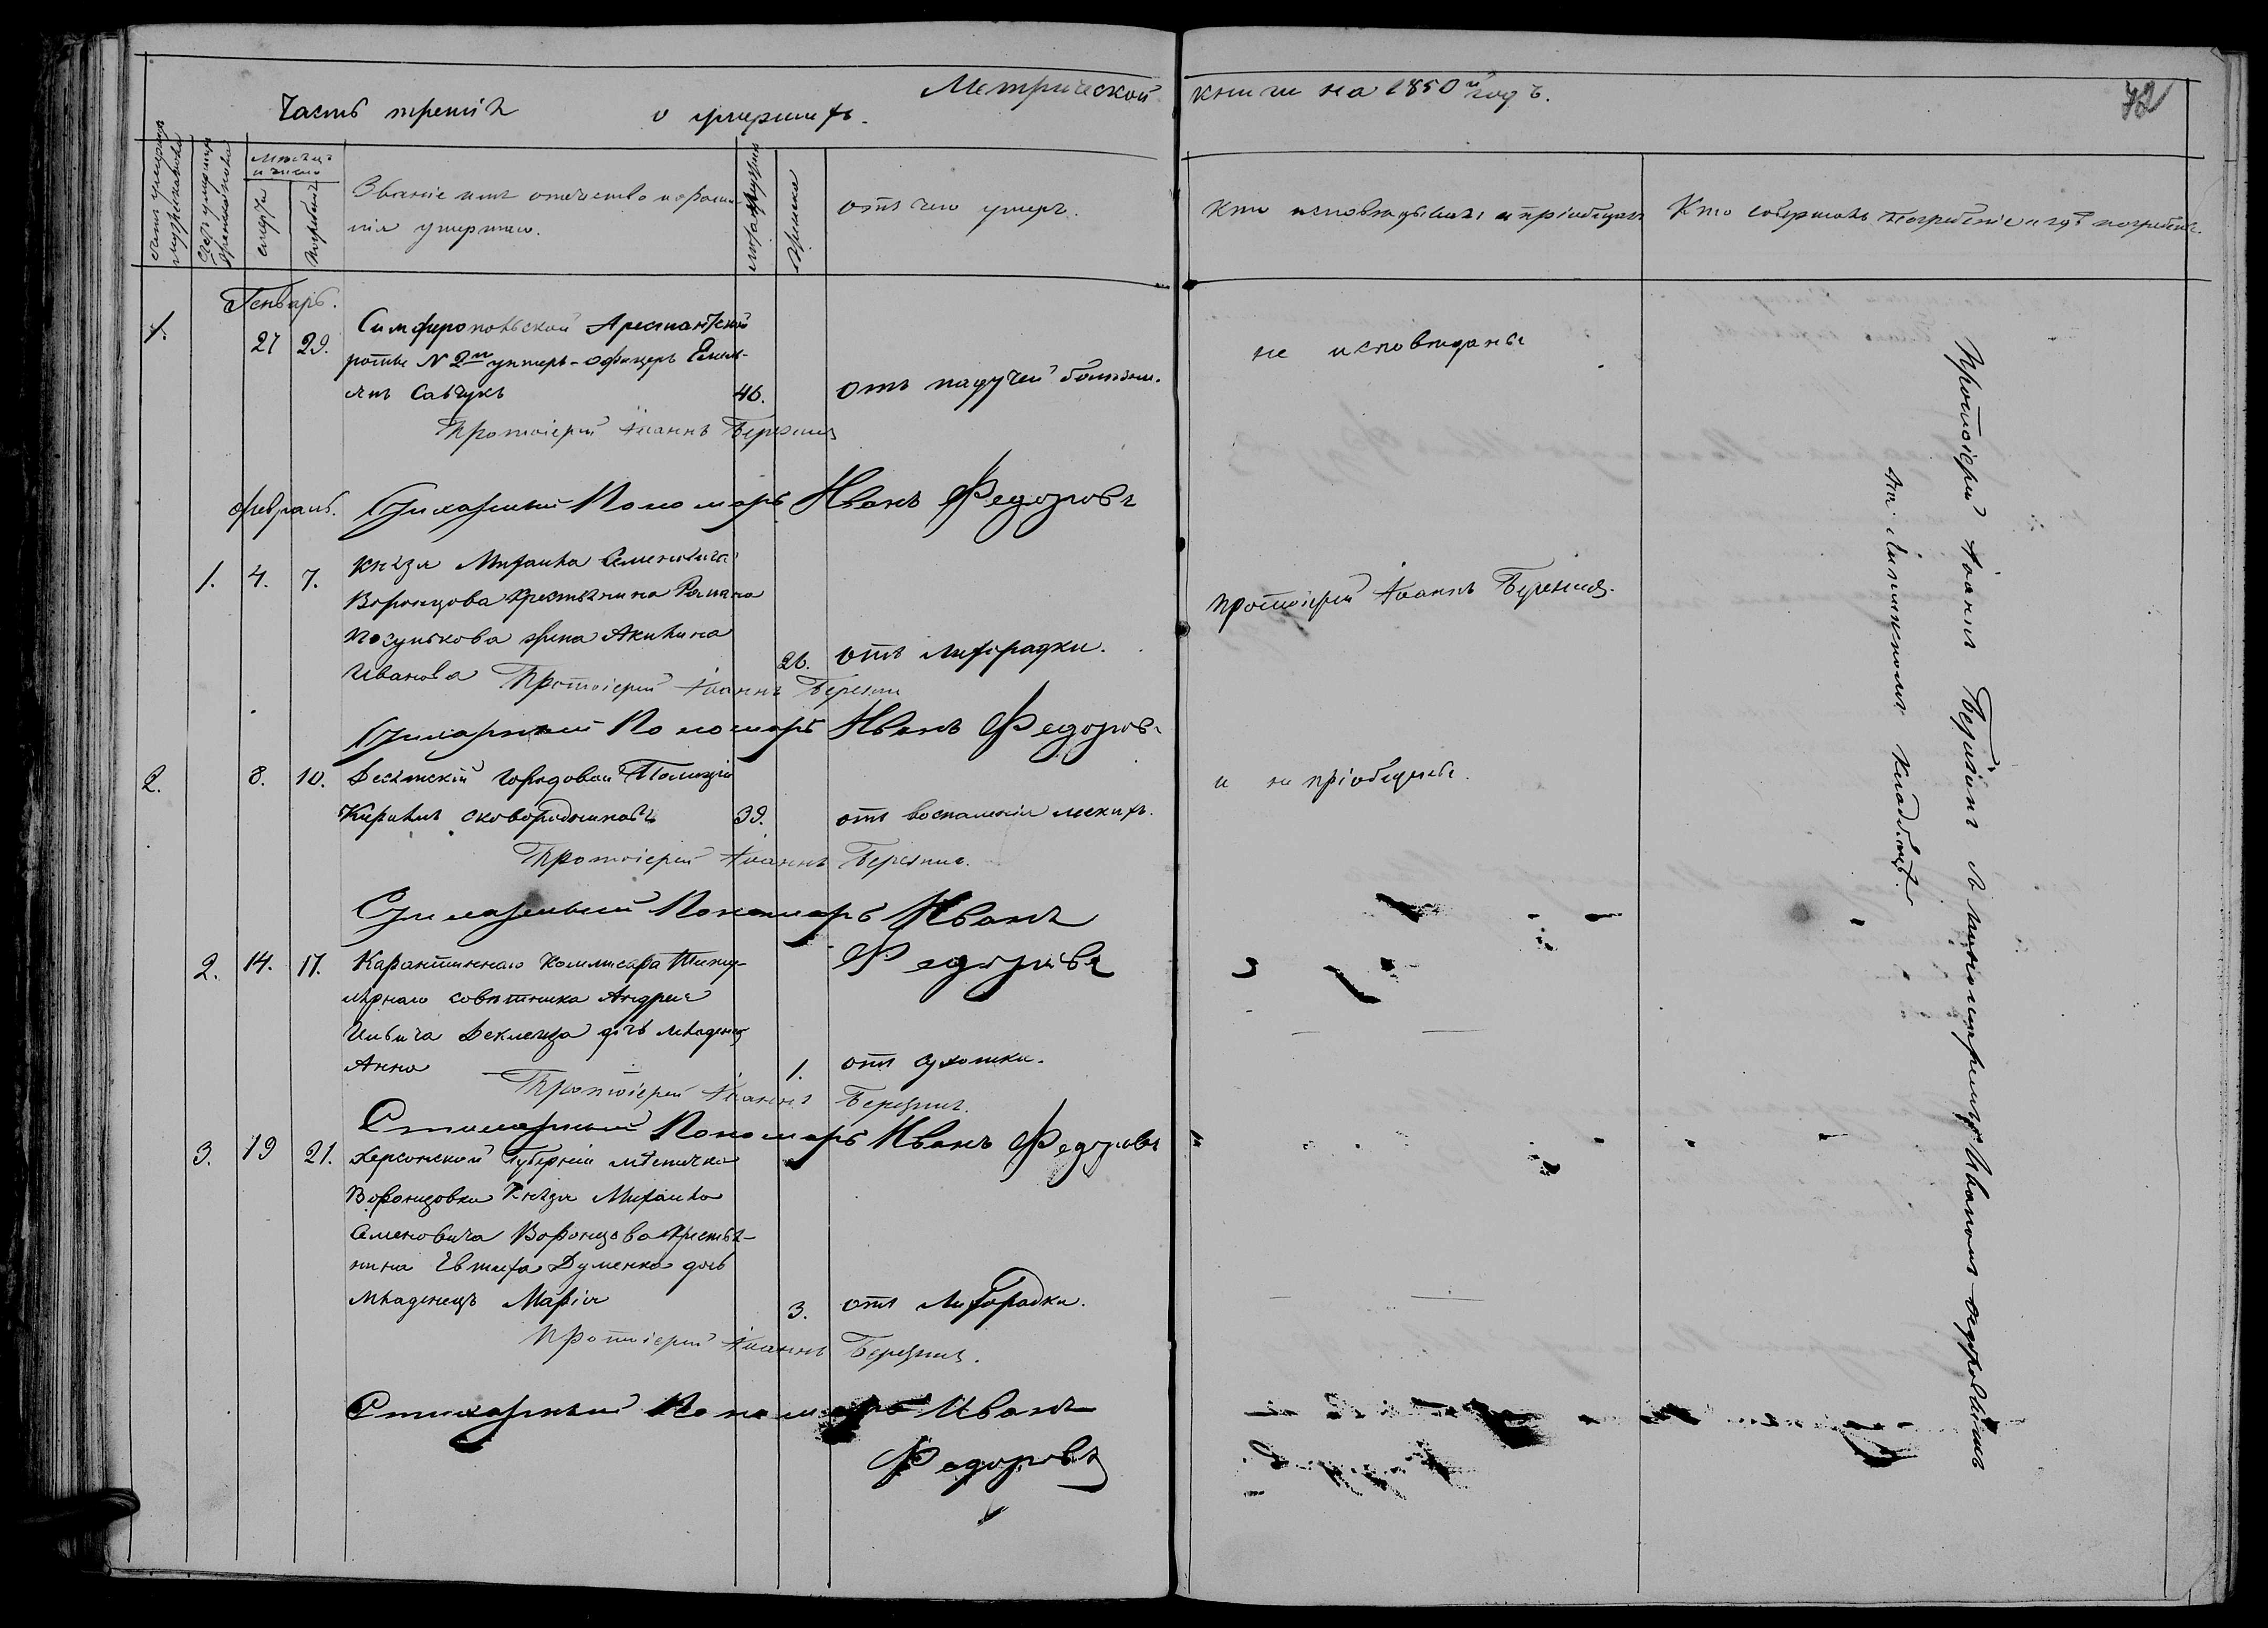 Метрической книги на 1850й годъ.
72
Часть третія о умершихъ.
Мѣсяцъ и число
смерти
погребенія
Званіе имя отечество и фамилія умершаго.
мужескаго
женска
отъ чего умеръ.
Кто исповѣдывалъ и пріобщалъ
Кто совершалъ погребеніе и гдѣ погребены.
Генварь.
1.
27 29.
Симферопольской Арестантской
роты N 2й унтеръ-офицеръ Емель-
янъ Савчукъ
46.
отъ падучей болѣзни.
не исповѣданы
Протоіерей Іоаннъ Березинъ
Февраль.
Стихарный Пономарь Иванъ Федоровъ
1. 4. 7.
Князя Михаила Семеновича
Воронцова крестьянина Романа
жена Акилина
Иванова
26.
отъ лихорадки.
протоіерей Іоаннъ Березинъ.
Протоіерей Іоаннъ Березинъ
Стихарный Пономарь Иванъ Федоровъ
2. 8. 10.
Десятскій городовой Полиціи
Кирилъ Сковородниковъ
39.
отъ воспаленія легкихъ.
и не пріобщены.
Протоіерей Іоаннъ Березинъ.
Стихарный Пономарь Иванъ
Федоровъ
2. 14. 17.
Карантиннаго Коммисара Титу-
лярнаго совѣтника Андрея
Ильича дочь младенецъ
Анна
1.
отъ сухотки.
Протоіерей Іоаннъ Березинъ.
Стихарный Пономарь Иванъ Федоровъ
3. 19 21.
Херсонской Губерніи мѣстечка
Воронцовки Князя Михаила
Семеновича Воронцова крестья-
нина Евтиха Думенка дочь
младенецъ Марія
3.
отъ Лихорадки.
Протоіерей Іоаннъ Березинъ.
Стихарный Пономарь Иванъ
Федоровъ
Протоіерей Іоаннъ Березинъ съ пономаремъ Иваномъ Федоровымъ
Кладбищѣ.